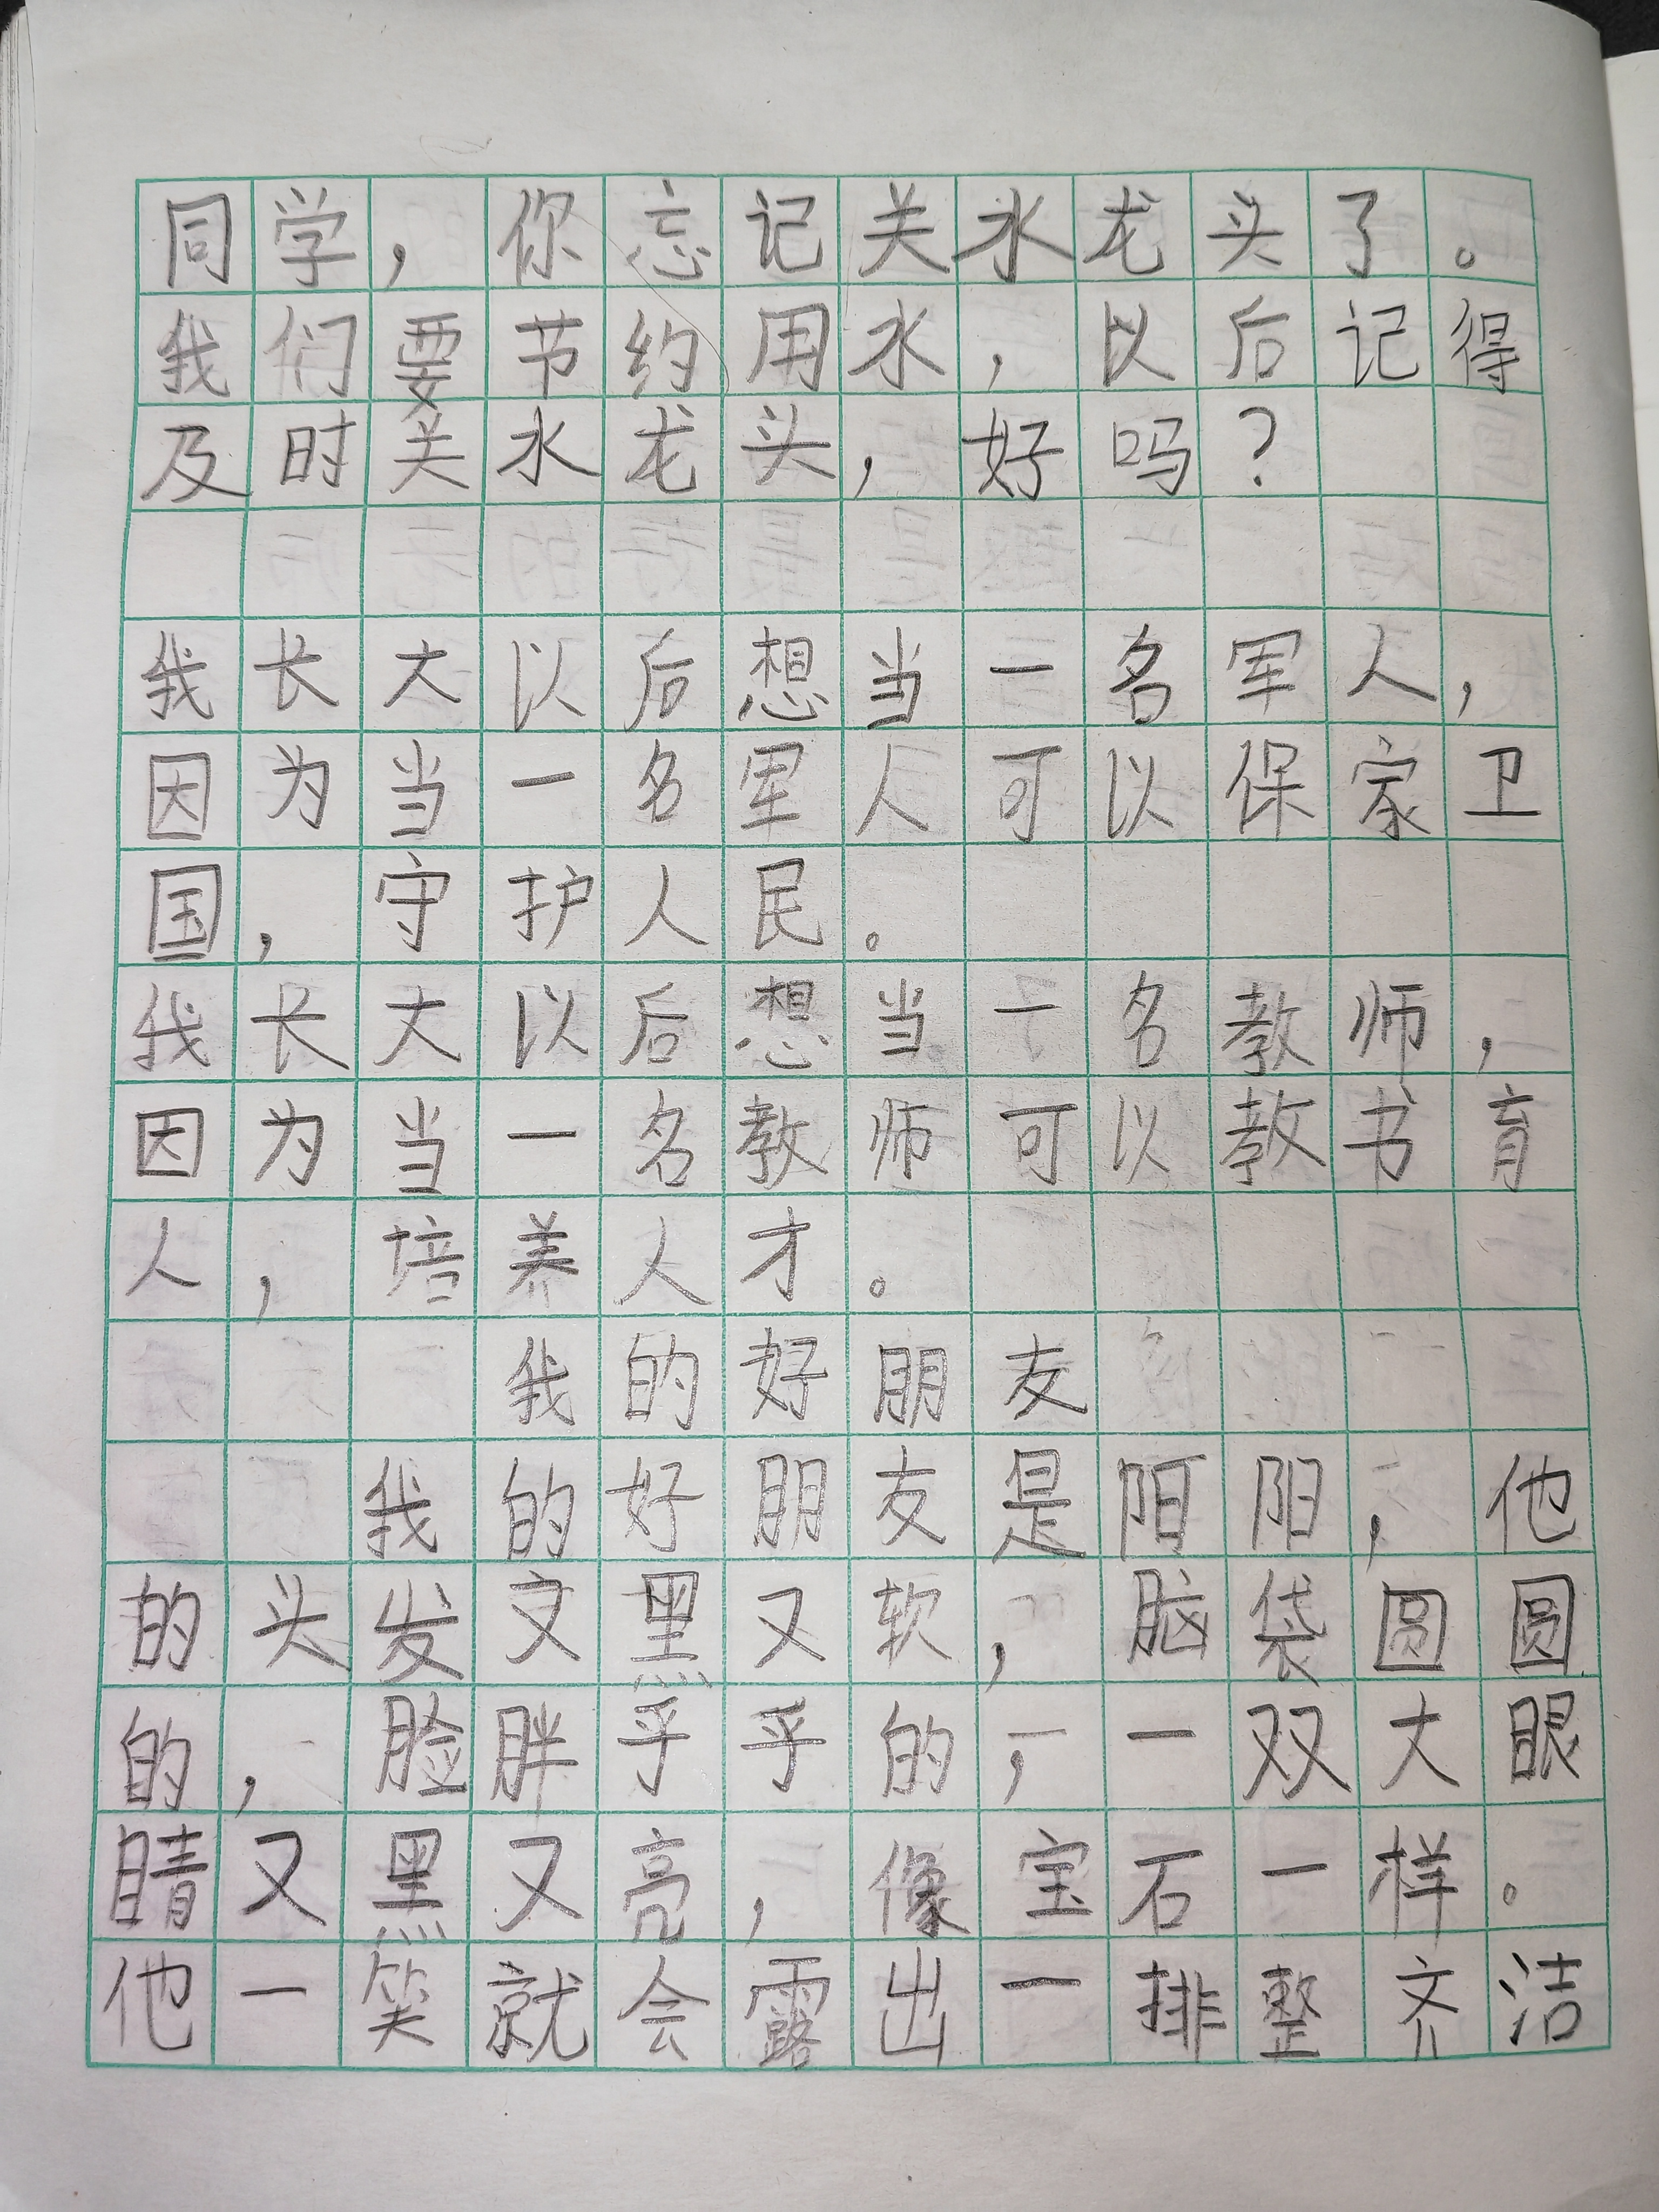 同学，你忘记关水龙头了。
我们要节约用水，以后记得
及时关水龙头，好吗？
我长大以后想当一名军人，
因为当一名军人可以保家卫
国，守护人民。
我长大以后想当一名教师，
因为当一名教师可以教书育
人，培养人才。
我的好朋友
我的好朋友是阳阳，他
的头发又黑又软，脑袋圆圆
的，脸胖乎乎的，一双大眼
睛又黑又亮，像宝石一样。
他一笑就会露出一排整齐洁